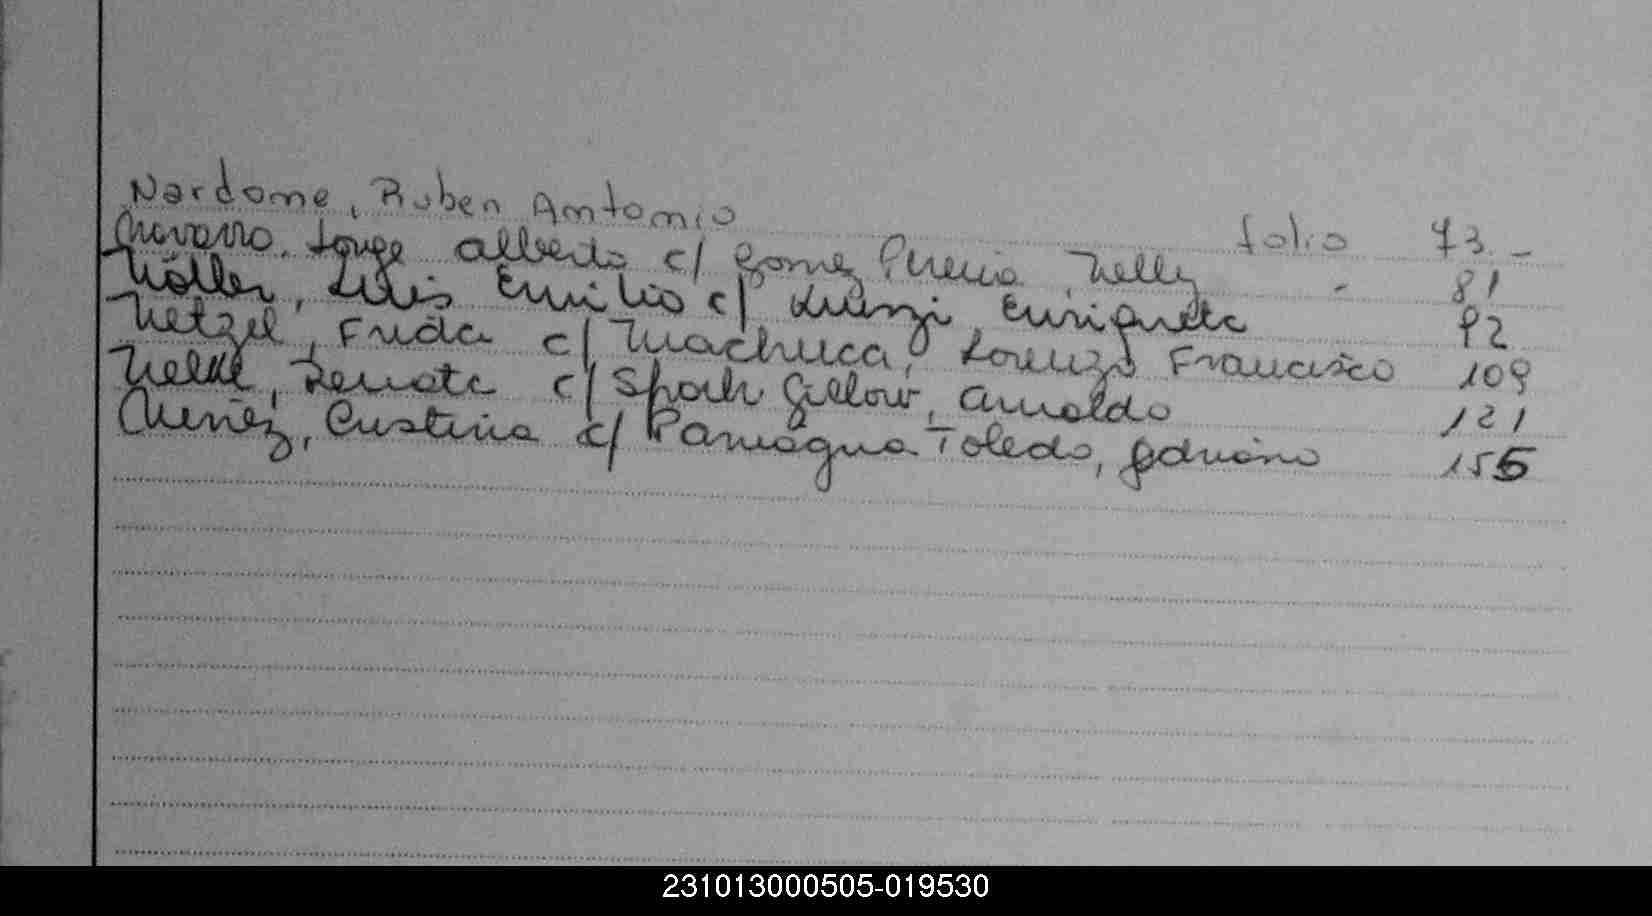 Nardone, Ruben Antonio folio 73.-
Navarro, Jorge Alberto c/ Gomez Pereira, Nelly " 81
Nöller, Luis Emilio c/ Enriqueta 92
Netzel, Frida c/ Machuca, Lorenzo Francisco 109
Renate c/ Arnoldo 121
Cristina c/ Paniagua Toledo, Adriano 155
231013000505-019530